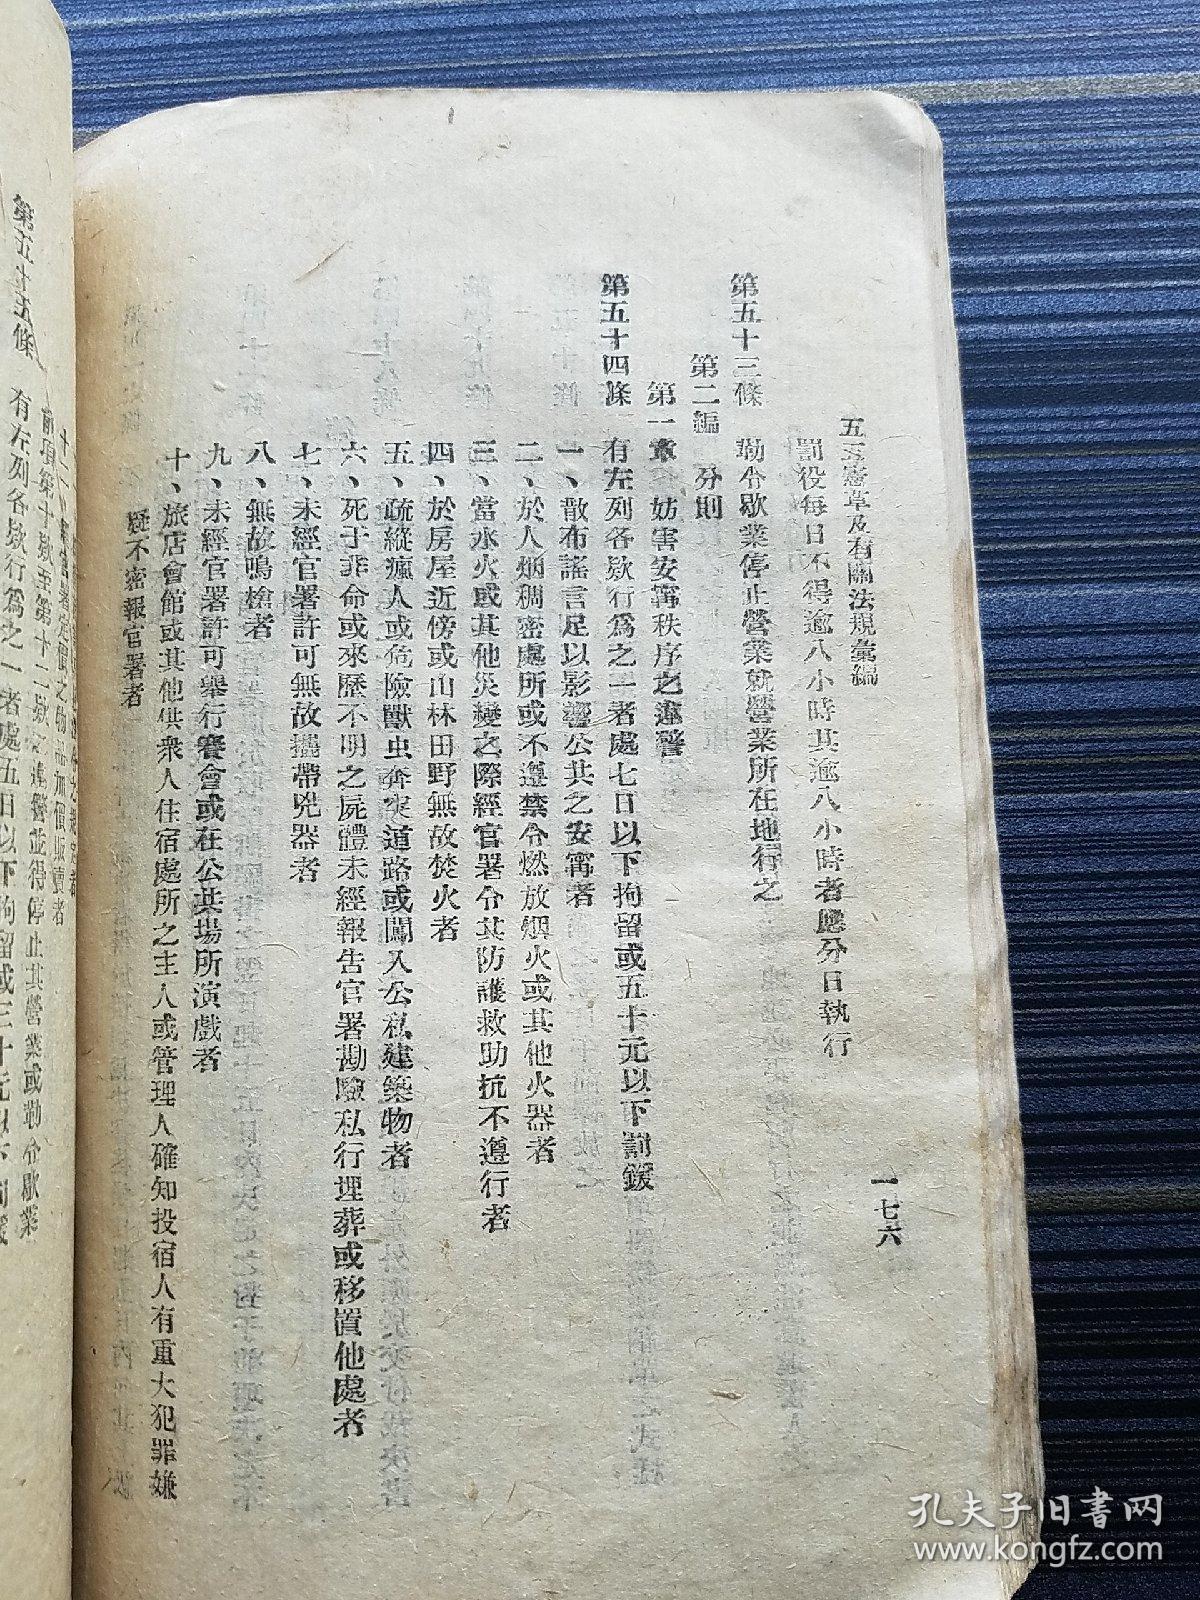 五五憲草及有關法規彙編
一七六
罰役每日不得逾八小時其逾八小時者應分日執行
第五十三條　勒令歇業停止營業就營業所在地行之
第二編　分則
第一章　妨害安寗秩序之違警
第五十四條　有左列各欵行爲之一者處七日以下拘留或五十元以下罰鍰
一、散布謠言足以影響公共之安寗者
二、於人烟稠密處所或不遵禁令燃放烟火或其他火器者
三、當水火或其他災變之際經官署令其防護救助抗不遵行者
四、於房屋近傍或山林田野無故焚火者
五、疏縱瘋人或危險獸虫奔突道路或闖入公私建築物者
六、死于非命或來歷不明之屍體未經報告官署勘驗私行埋葬或移置他處者
七、未經官署許可無故攜帶兇器者
八、無故鳴槍者
九、未經官署許可舉行賽會或在公共場所演戲者
十、旅店會館或其他供衆人住宿處所之主人或管理人確知投宿人有重大犯罪嫌
疑不密報官署者
前項第十欵至第十二欵之違警並得停止其營業或勒令歇業
第五十五條　有左列各欵行爲之一者處五日以下拘留或三十元以下
孔夫子旧书网
www.kongfz.com